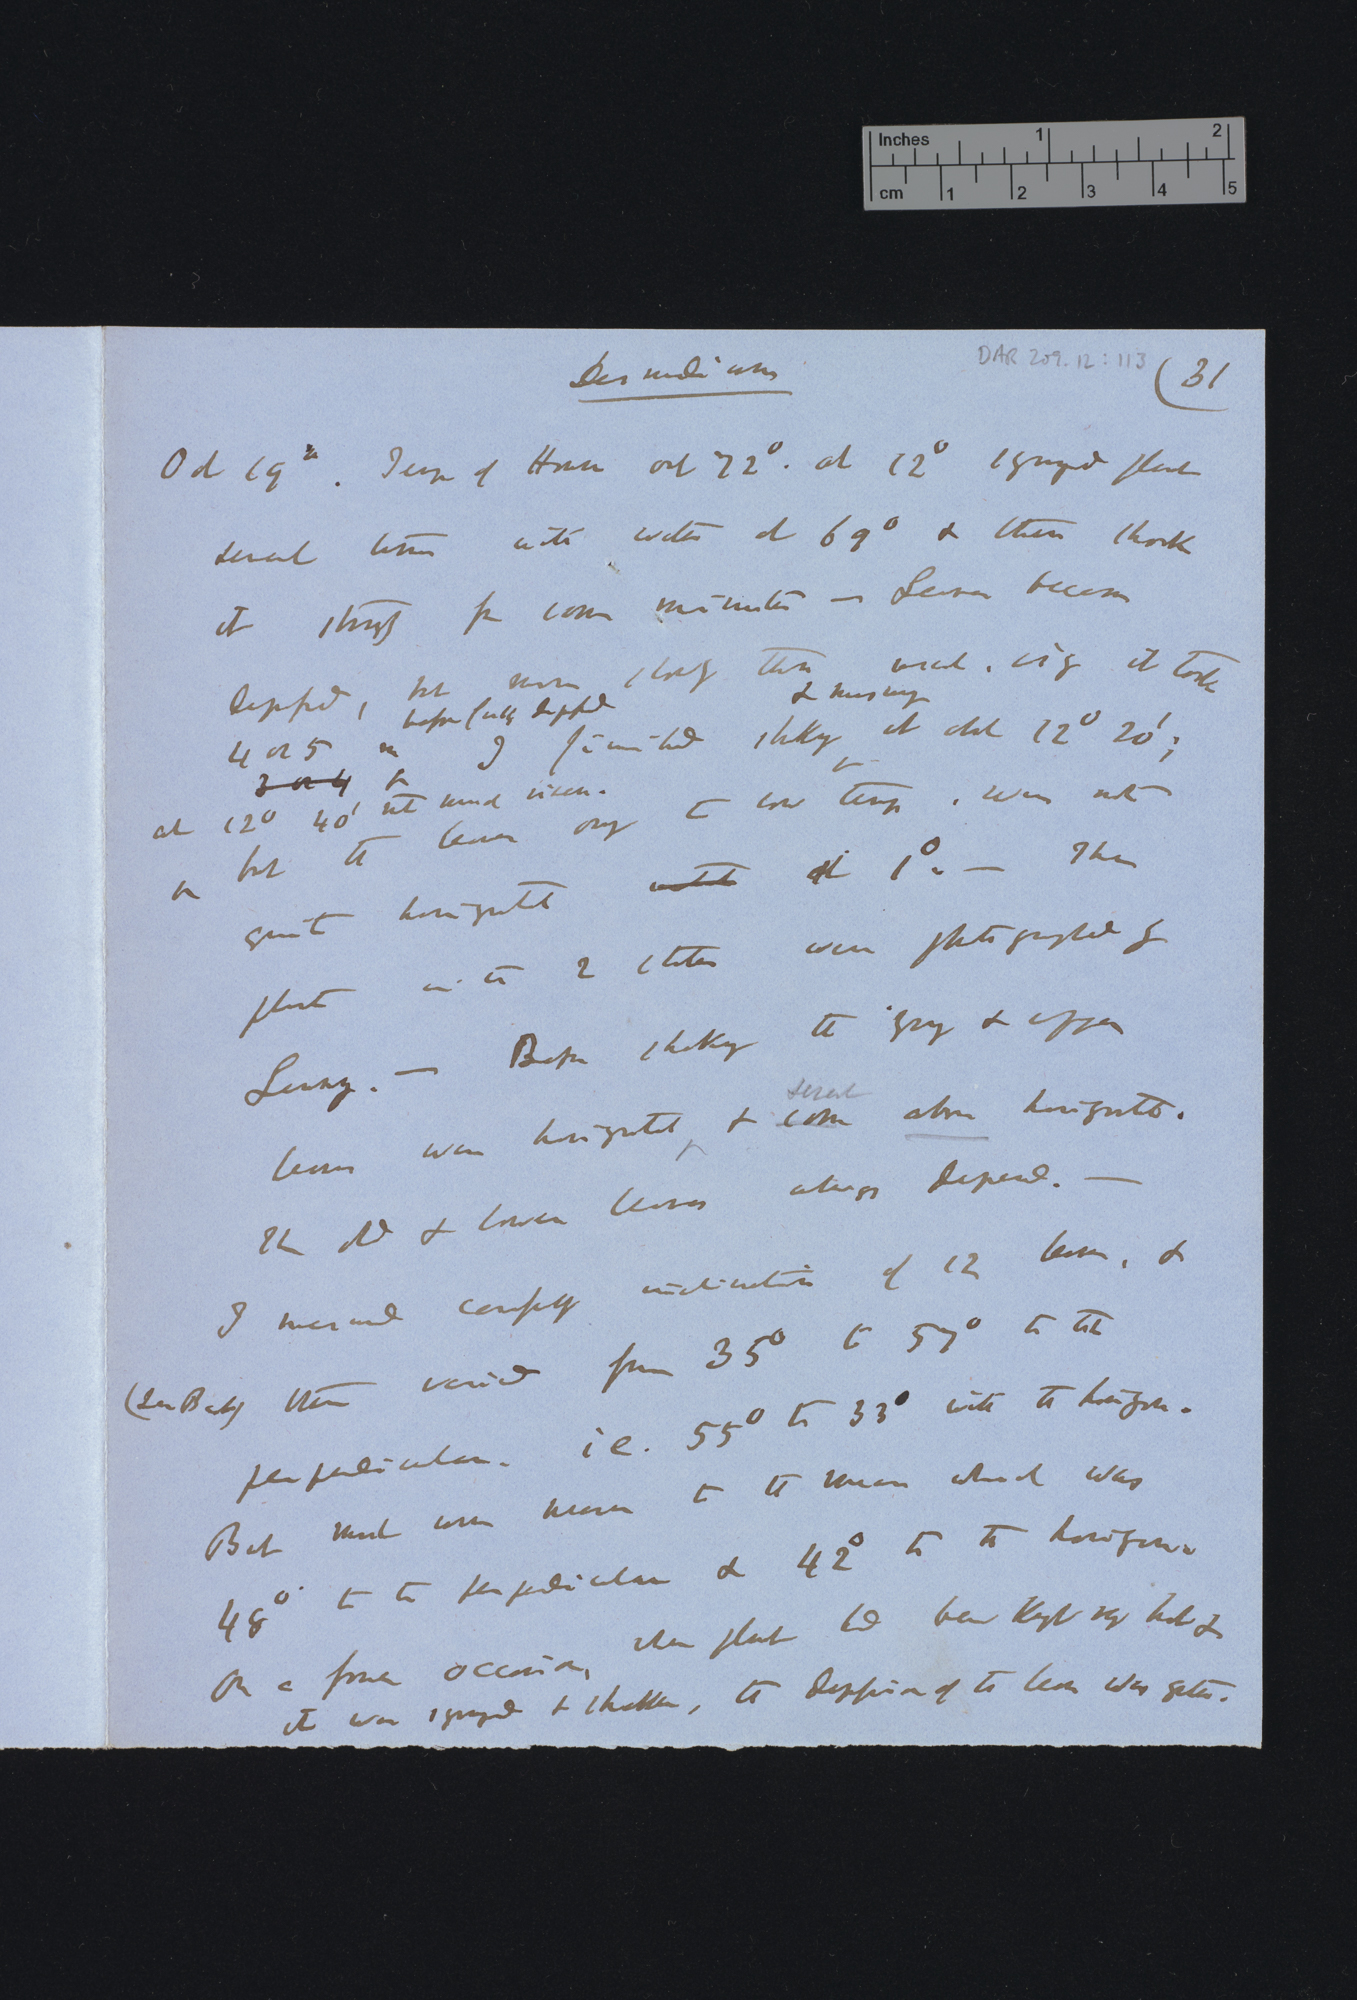 Inches 1 2
cm 1 2 3 4 5
DAR 209.12:113
(31
Desmodium
Oct 19th. Temp of House only 72°. at 12° syringed plant
several times with water at 69° & then shook
it strongly for some minutes — Leaves became
depressed, but more slowly than usual. it took
before fully depressed & measuring
4 or 5 m I finished shaking it at 12° 20';
3 or 4
at 12° 40' not much risen.
but the leaves owing to low temp. were not
quite horizontal until at 1°. — The
plant in its 2 states were photographed by
Lenny. — Before shaking the young & upper
several
leaves were horizontal, & some above horizontal.
The old & lower leaves always depend. —
I measured carefully inclination of 12 leaves, &
(See Back) these varied from 35° to 57° to the
perpendicular. i.e. 55° to 33° with the horizon.
But most were nearer to the mean which was
48° to the perpendicular & 42° to the horizon.
On a former occasion, when plant had been kept very hot &
it was syringed & shaken, the depression of the leaves was greater.